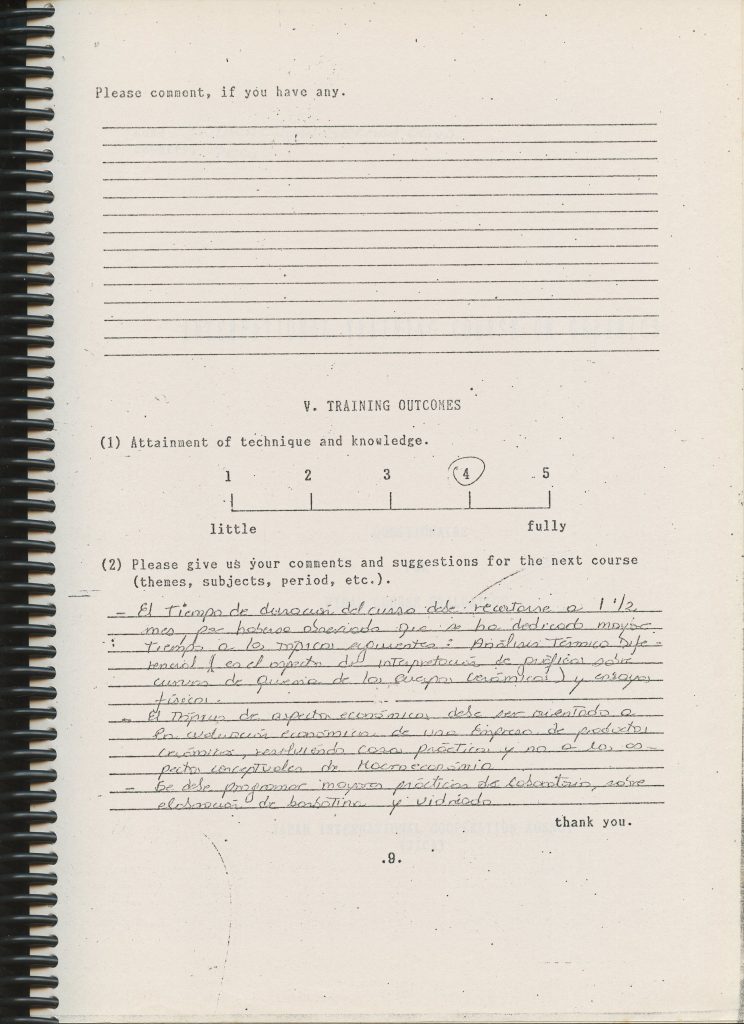 Please comment, if you have any.
V. TRAINING OUTCOMES
(1) Attainment of technique and knowledge.
1 2 3 4 5
little fully
(2) Please give us your comments and suggestions for the next course
(themes, subjects, period, etc.).
- El tiempo de duración del curso debe recortarse a 1 1/2
mes, por haberse observado que se ha dedicado mayor
tiempo a los tópicos siguientes: Análisis Térmico Dife-
rencial (en el aspecto de interpretación de gráficos sobre
curvas de quema de los cuerpos cerámicos) y ensayos
físicos.
- El tópico de aspectos económicos debe ser orientado a
la evaluación económica de una Empresa de productos
cerámicos, resolviendo casos prácticos y no a los as-
pectos conceptuales de Macroeconomía.
- Se debe programar mayores prácticas de laboratorio, sobre
elaboración de barbotina y vidriado.
thank you.
.9.